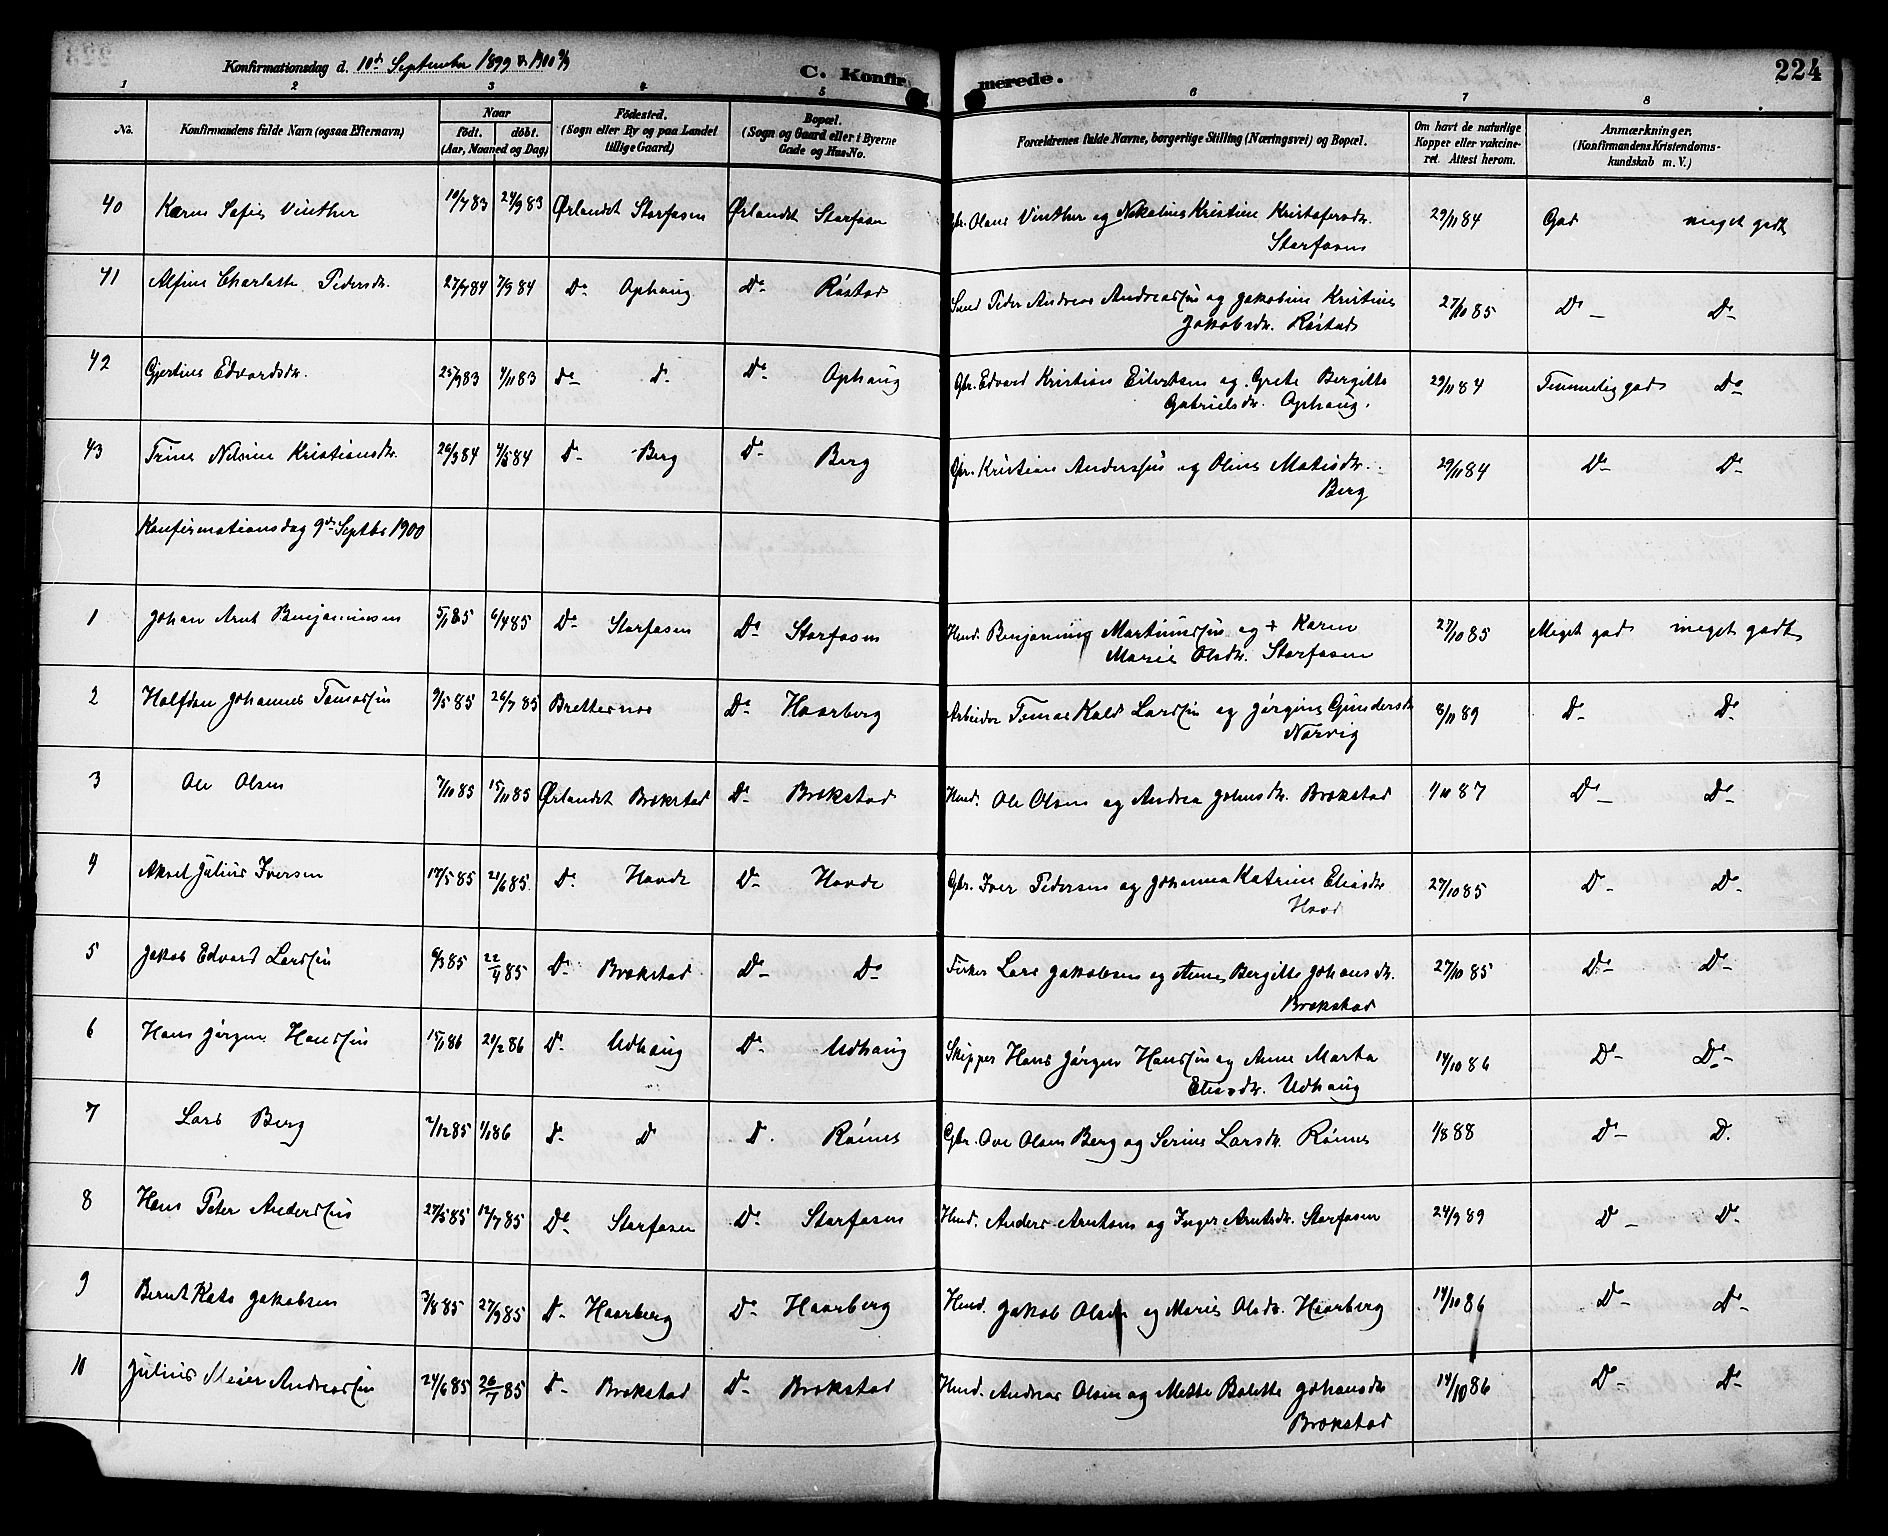 Konfirmationsdag d. 10de September 1899 & 1900 9/9
C. Konfirmerede.
224
1 2 3 4 5 6 7 8
No.
Konfirmandens fulde Navn (ogsaa Efternavn)
Naar
födt. döbt.
(Aar, Maaned og Dag)
Födested.
(Sogn eller By og paa Landet
tillige Gaard)
Bopæl.
(Sogn og Gaard eller i Byerne
Gade og Hus-No.
Forældrenes fulde Navne, borgerlige Stilling (Næringsvei) og Bopæl.
Om havt de naturlige
Kopper eller vakcine-
ret. Attest herom.
Anmærkninger.
(Konfirmandens Kristendoms-
kundskab m. V.)
40 Karen Sofie Vinther 19/7 83 24/9 83 Ørlandet Storfosen Ørlandet Storfosen Gbr. Olaus Vinther og Nikoline Kristine Kristofersdr. 29/11 84 God meget godt
Storfosen
41 Alfine Charlotte Pedersdr. 27/7 84 7/9 84 Do Ophaug Do Røstad Smed Peder Andreas Andreassen og Jakobine Kristine 27/10 85 Do Do
Jakobsdr. Røstad
42 Gjertine Edvardsdr. 25/9 83 4/11 83 Do Do Do Ophaug Gbr. Edvard Kristian Eilertsen og Grete Bergitte 29/11 84 Temmelig god Do
Gabrielsdr. Ophaug.
43 Trine Nelsine Kristiansdr. 26/3 84 4/5 84 Do Berg Do Berg Gbr. Kristian Anderssen og Oline Matisdr. 29/11 84 Do Do
Berg
Konfirmationsdag 9de Septbr 1900
1 Johan Arnt Benjaminsen 5/1 85 6/4 85 Do Storfosen Do Storfosen Husmd. Benjamin Martinussen og + Karen 27/10 85 Meget god meget godt
Marie Olsdr. Storfosen
2 Halfdan Johannes Tomassen 9/5 85 26/7 85 Bretternes Do Haarberg Arbeider Tomas Kald Larssen og Jørgine Gundersdr 8/11 89 Do Do
Norvig
3 Ole Olsen 7/10 85 15/11 85 Ørlandet Brekstad Do Brekstad Husmd. Ole Olsen og Andrea Johnsdr. Brekstad 1/11 87 Do Do
4 Aksel Julius Iversen 17/5 85 21/6 85. Do Hovde Do Hovde Gbr. Iver Pedersen og Johanna Katrine Eliasdr 27/10 85 Do Do
Hovd
5 Jakob Edvard Larssen 6/3 85 22/4 85 Do Brekstad Do Do Fisker Lars Jakobsen og Anne Bergitte Johansdr. 27/10 85 Do Do
Brekstad
6 Hans Jørgen Hanssen 15/1 86 20/2 86 Do Udhaug Do Udhaug Skipper Hans Jørgen Hanssen og Anne Marta 14/10 86 Do Do
Eliasdr. Udhaug
7 Lars Berg 2/12 85 1/1 86 Do Do Do Rømes Gbr. Ove Olsen Berg og Serine Larsdr. Rømes 1/8 88 Do Do
8 Hans Peter Anderssen 27/5 85 12/7 85 Do Storfosen Do Storfosen Husmd. Anders Arntsen og Inger Arntsdr. Storfosen 24/9 89 Do Do
9 Bernt Kato Jakobsen 3/8 85 27/9 85 Do Haarberg Do Haarberg Husmd. Jakob Olsen og Marie Olsdr. Haarberg 14/10 86 Do Do
10 Julius Meier Andreassen 24/6 85 26/7 85 Do Brekstad Do Brekstad Husmd. Andreas Olsen og Mette Bolette Johansdr 14/10 86 Do Do
Brekstad